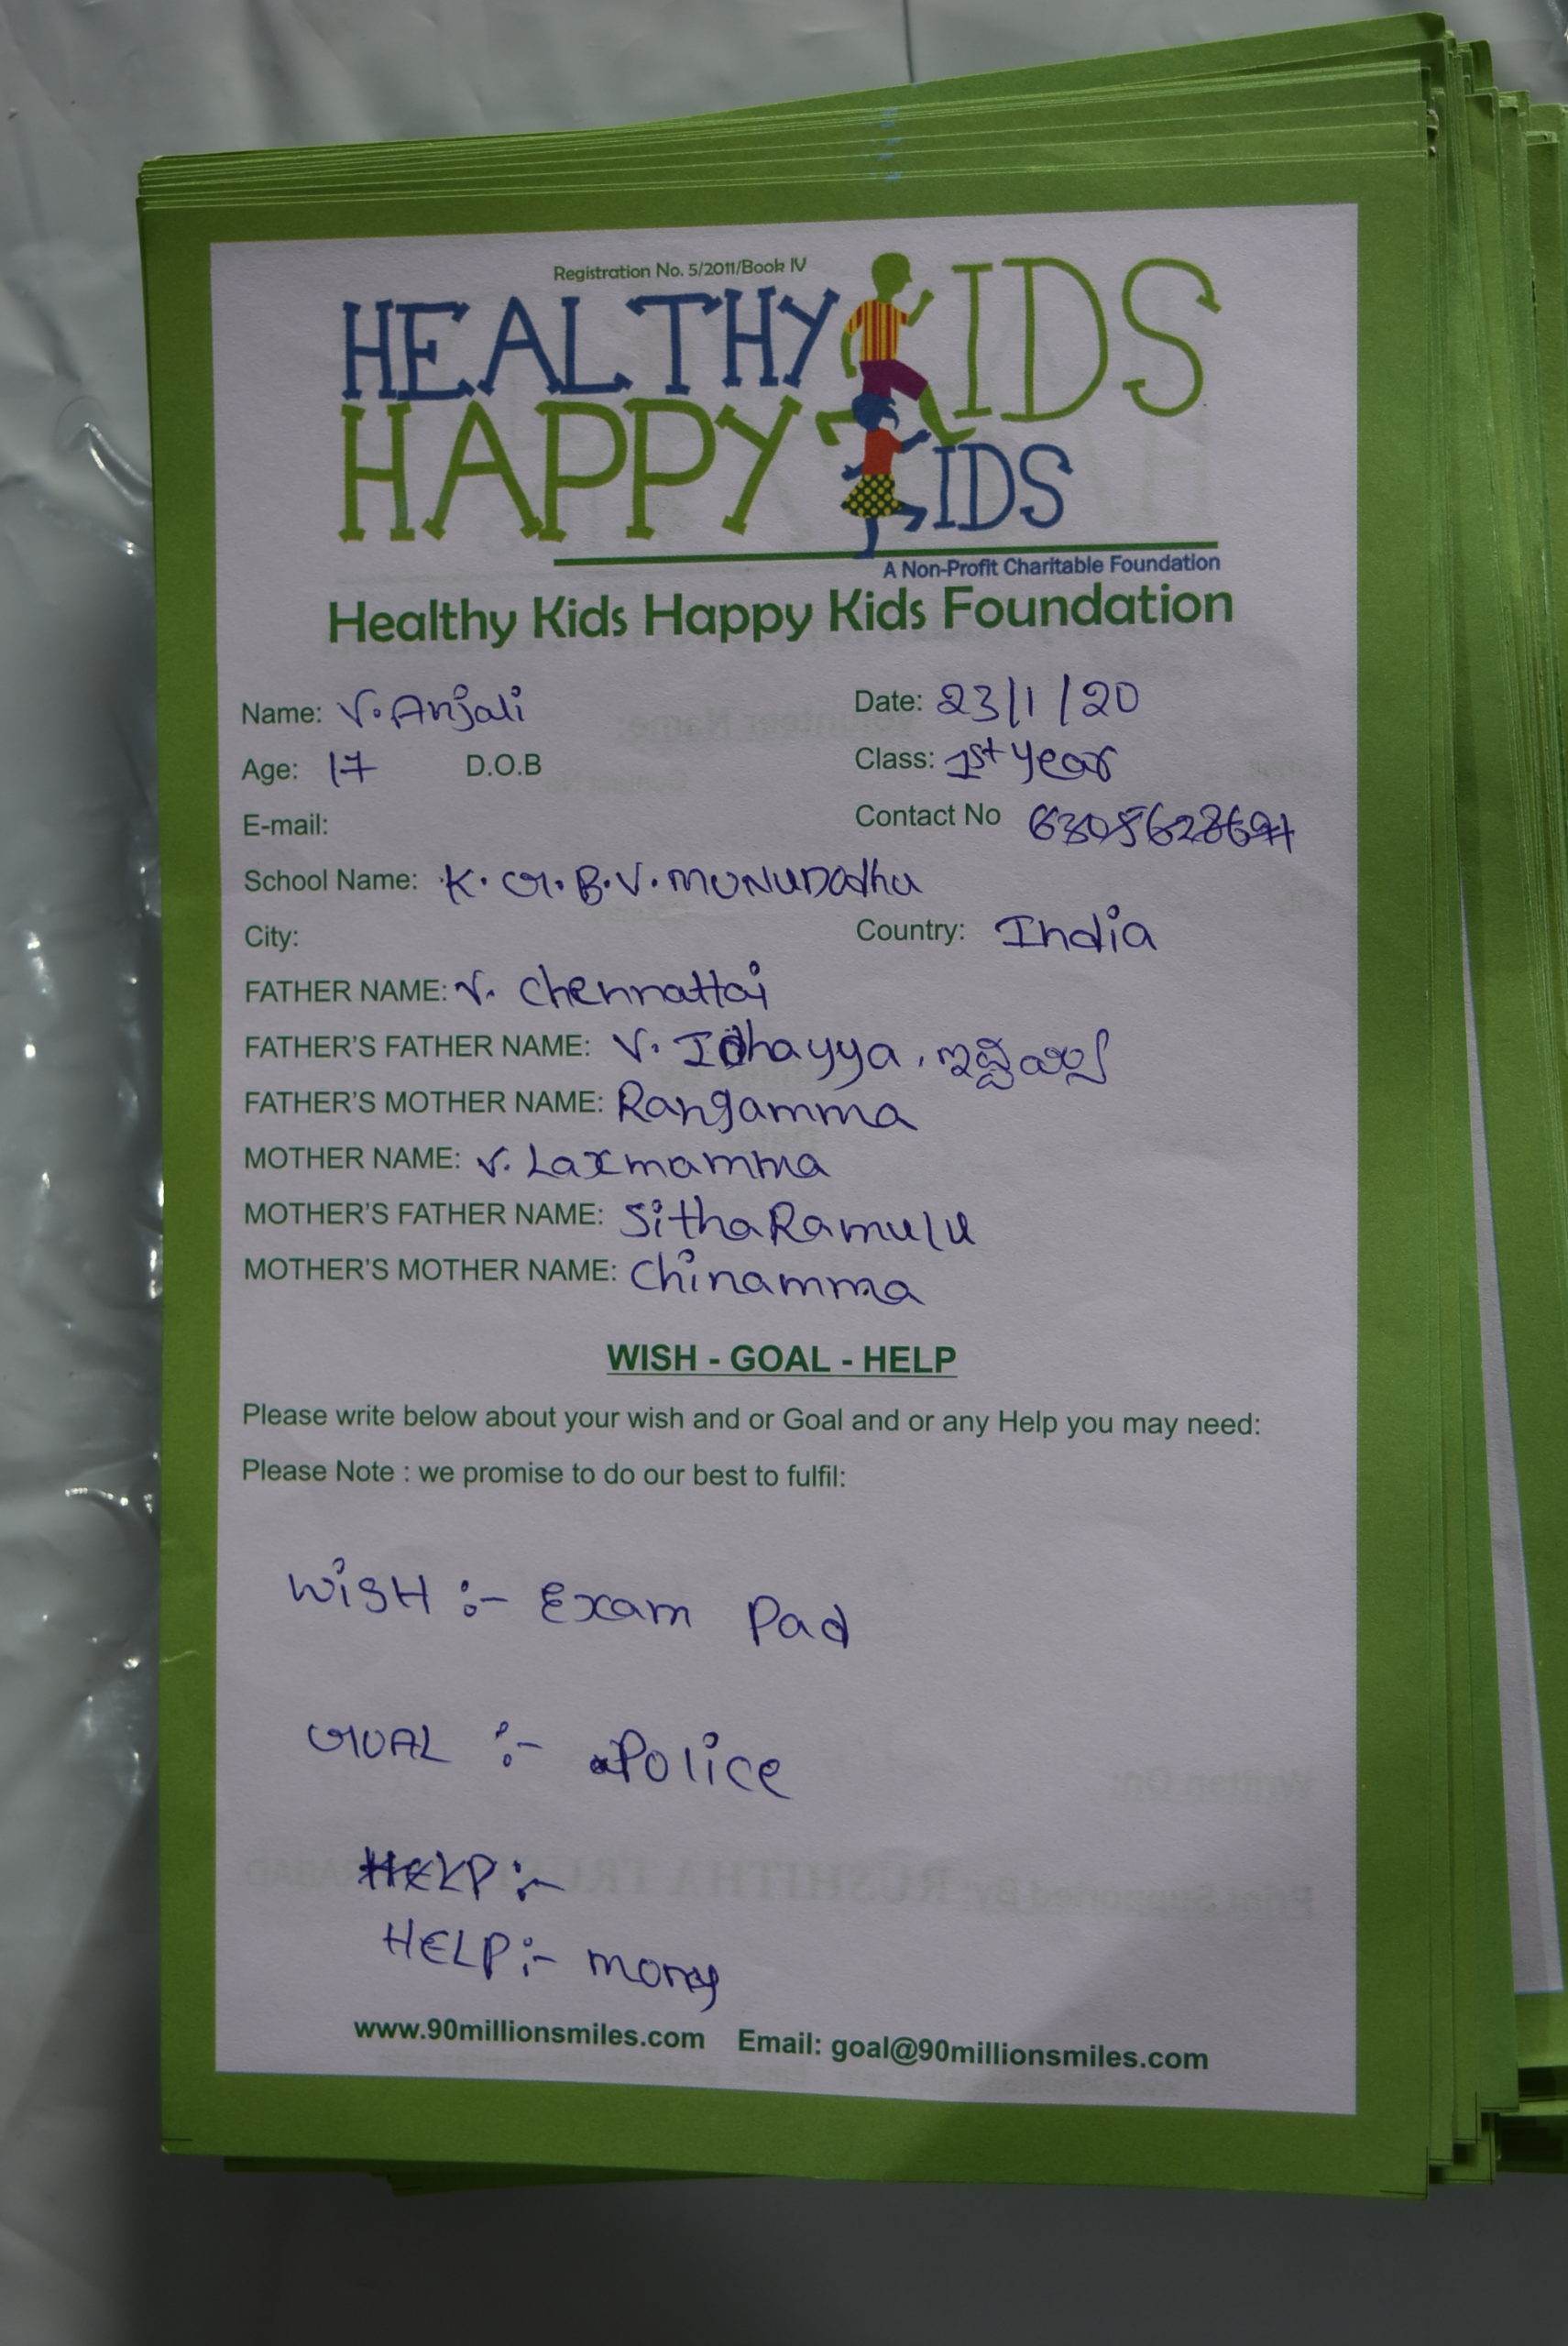 Registration No. 5/2011/Book IV
HEALTHY KIDS
HAPPY KIDS
A Non-Profit Charitable Foundation
Healthy Kids Happy Kids Foundation
Name: V. Anjali Date: 23/1/20
Age: 17 D.O.B Class: 1st year
E-mail: Contact No
School Name: K.G.B.V. MUNUDOdhu
City: Country: India
FATHER NAME: V. Chennattai
FATHER'S FATHER NAME: V. Idhayya,
FATHER'S MOTHER NAME: Rangamma
MOTHER NAME: V. Laxmamma
MOTHER'S FATHER NAME: SithaRamulu
MOTHER'S MOTHER NAME: Chinamma
WISH - GOAL - HELP
Please write below about your wish and or Goal and or any Help you may need:
Please Note : we promise to do our best to fulfil:
WiSH :- Exam Pad
GOAL :- Police
HELP :-
HELP :- money
www.90millionsmiles.com Email: goal@90millionsmiles.com